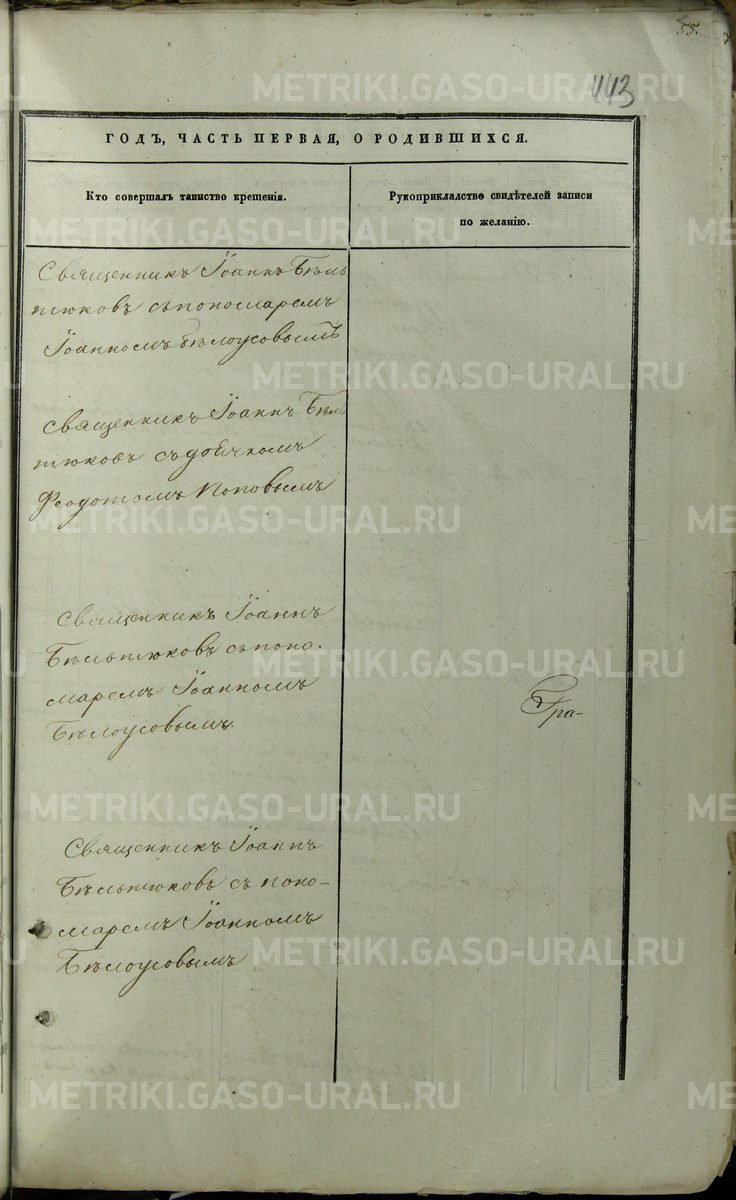 55.
443
ГОДЪ, ЧАСТЬ ПЕРВАЯ, О РОДИВШИХСЯ.
Кто совершалъ таинство крещенія.
Рукоприкладство свидѣтелей записи
по желанію.
Священникъ Іоаннъ Бѣль
тюковъ съ пономаремъ
Іоанномъ Бѣлоусовымъ
Священникъ Іоаннъ Бѣль
тюковъ съ дьячкомъ
Феодотомъ Поповымъ
Священникъ Іоаннъ
Бѣльтюковъ съ поно-
маремъ Іоанномъ
Бѣлоусовымъ.
Гра-
Священникъ Іоаннъ
Бѣльтюковъ съ поно-
маремъ Іоанномъ
Бѣлоусовымъ
METRIKI.GASO-URAL.RU